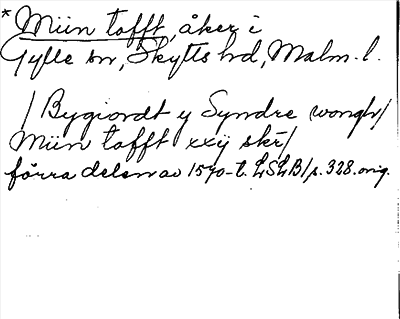 * Miin tofft, åker i
Gylle sn, Skytts hd, Malm. l.
/ Bygiordt y Syndre wongh/
Miin tofft xxij skr/
förra delen av 1570-t. LSLB/p. 328. orig.